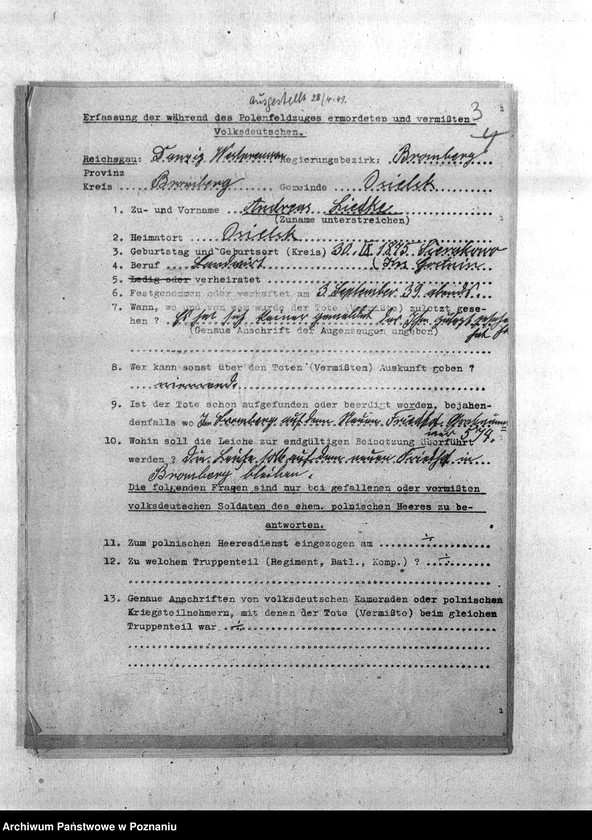 ausgestellt 28/4.41.
3
4
Erfassung der während des Polenfeldzuges ermordeten und vermißten
Volksdeutschen.
Reichsgau: Danzig Westpreussen Regierungsbezirk: Bromberg
Provinz
Kreis .... Bromberg ........ Gemeinde .... Osielsk ........
1. Zu- und Vorname .. Andreas Liedtke
(Zuname unterstreichen)
2. Heimatort .... Osielsk
3. Geburtstag und Geburtsort (Kreis) 30. 1875.
4. Beruf .... Landwirt
5. Ledig oder verheiratet
6. Festgenommen oder verhaftet am 3 September 39 abends
7. Wann, wo und von wem wurde der Tote (Vermißte) zuletzt gese-
hen ? Es hat sich keiner gemeldet der ihn zuletzt gesehen
hat
(Genaue Anschrift der Augenzeugen angeben)
8. Wer kann sonst über den Toten (Vermißten) Auskunft geben ?
niemand
9. Ist der Tote schon aufgefunden oder beerdigt worden, bejahen-
denfalls wo In Bromberg auf dem Neuen Friedhof. Grabnum-
mer 574.
10. Wohin soll die Leiche zur endgültigen Beisetzung überführt
werden ? Die Leiche soll auf dem neuen Friedhof in
Bromberg bleiben.
Die folgenden Fragen sind nur bei gefallenen oder vermißten
volksdeutschen Soldaten des ehem. polnischen Heeres zu be-
antworten.
11. Zum polnischen Heeresdienst eingezogen am
12. Zu welchem Truppenteil (Regiment, Batl., Komp.) ?
13. Genaue Anschriften von volksdeutschen Kameraden oder polnischen
Kriegsteilnehmern, mit denen der Tote (Vermißte) beim gleichen
Truppenteil war
Archiwum Państwowe w Poznaniu